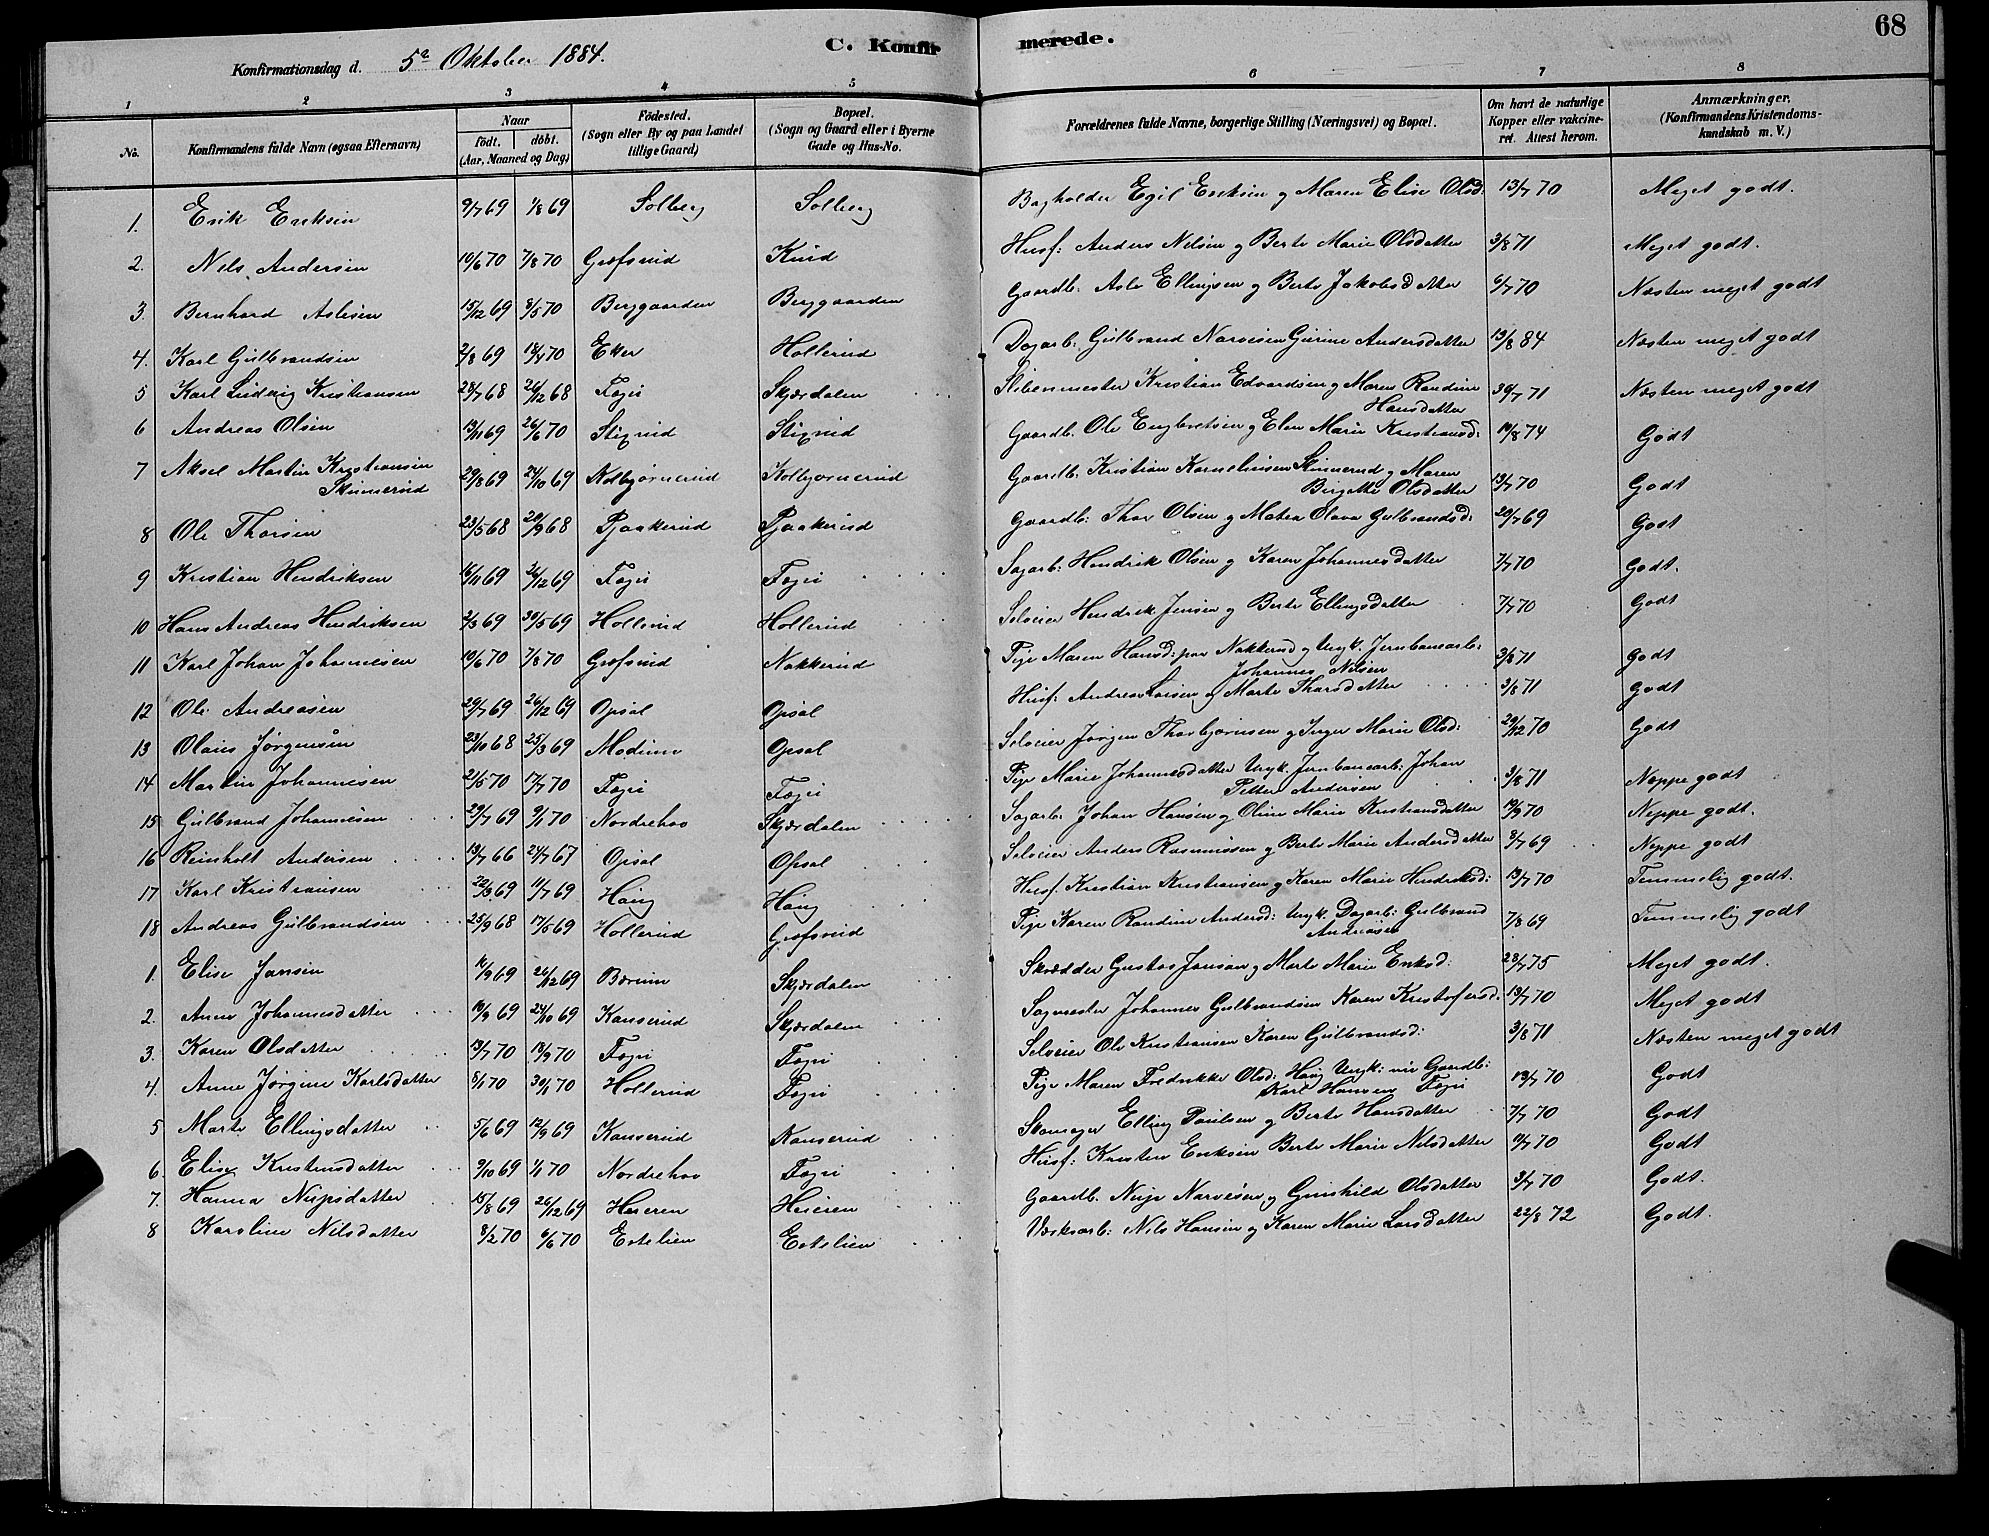 68
C. Konfirmerede.
Konfirmationsdag d. 5te Oktober 1884.
1 2 3 4 5 6 7 8
No. Konfirmandens fulde Navn (ogsaa Efternavn) Naar født, døbt. (Aar, Maaned og Dag) Fødested. (Sogn eller By og paa Landet tillige Gaard) Bopæl. (Sogn og Gaard eller i Byerne Gade og Hus-No. Forældrenes fulde Navne, borgerlige Stilling (Næringsvei) og Bopæl. Om havt de naturlige Kopper eller vakcineret. Attest herom. Anmærkninger. (Konfirmandens Kristendomskundskab m. V.)
1. Erik Eriksen 9/7 69 1/8 69 Solberg Solberg Bagholder Egil Eriksen og Maren Elise Olsd: 13/7 70 Meget godt.
2. Nels Andersen 10/6 70 7/8 70 Græfsrud Husf: Anders Nelsen og Berte Marie Olsdatter 3/8 71 Meget godt.
3. Bernhard Aslesen 15/12 69 8/5 70 Berggaarden Berggaarden Gaardb: Asle Ellingsen og Berte Jakobsdatter 6/7 70 Næsten meget godt
4. Karl Gulbrandsen 2/8 69 18/4 70 Eker Hollerud Dagarb: Gulbrand Narvesen Gurine Andersdatter 13/8 84 Næsten meget godt
5 Karl Ludvig Kristiansen 28/7 68 26/12 68 Fagri Skjærdalen Slibenmester Kristian Edvardsen og Maren Randine Hansdatter 30/7 71 Næsten meget godt
6 Andreas Olsen 13/11 69 26/6 70 Stigrud Stigrud Gaardb. Ole Engbretsen og Elen Marie Kristiansd: 19/8 74 Godt
7 Aksel Martin Kristiansen Skinnerud 29/8 69 24/10 69 Kolbjørnerud Kolbjørnerud Gaardb: Kristian Kornelinsen Skinnerud og Maren Birgitte Olsdatter 13/7 70 Godt
8 Ole Thorsen 23/5 68 20/9 68 Pjaakerud Pjaakerud Gaardb: Thor Olsen og Matea Olava Gulbrandsd: 20/7 69 Godt
9 Kristian Hendriksen 16/11 69 26/12 69 Fagri Fagri Sagarb: Hendrik Olsen og Karen Johannesdatter 7/7 70 Godt.
10 Hans Andreas Hendriksen 2/3 69 30/5 69 Hollerud Hollerud Selveier Hendrik Jensen og Berte Ellingsdatter 7/7 70 Godt
11 Karl Johan Johannesen 10/6 70 7/8 70 Græfsrud Nakkerud Pige Maren Hansd: paa Nakkerud og Ungk: Jernbanearb: Johannes Nilsen 3/8 71 Godt
12 Ole Andreasen 29/7 69 26/12 69 Opsal Opsal Husf: Andreas Larsen og Marte Tharsdatter 3/8 71 Godt
13 Olaus Jørgensen 23/10 68 25/3 69 Modum Opsal Selveier Jørgen Thorbjørnsen og Inger Marie Olsd: 29/12 70 Godt
14 Martin Johannesen 21/5 70 17/7 70 Fagri Fagri Pige Marie Johannesdatter Ungk. Jernbanearb: Johan Petter Andersen 3/8 71 Neppe godt
15 Gulbrand Johannesen 29/7 69 9/1 70 Nordrehov Skjærdalen Sagarb: Johan Hansen og Oline Marie Kristiansdatter 19/9 70 Neppe godt.
16 Reinholt Andersen 13/7 66 24/7 67 Opsal Opsal Selveier Anders Rasmussen og Berte Marie Andersdatter 3/7 69 Neppe godt
17 Karl Kristiansen 22/3 69 11/7 69 Haug Haug Husf. Kristian Kristiansen og Karen Marie Hendriksd: 13/7 70 Temmelig godt.
18 Andreas Gulbrandsen 25/9 68 17/5 69 Hollerud Græfsrud Pige Karen Randine Andersd: Ungk. Dagarb: Gulbrand Andreasen 7/8 69 Temmelig godt
1. Elise Jansen 16/9 69 26/12 69 Bærum Skjærdalen Skrædder Gustav Jansen og Marte Marie Eriksd: 23/7 75 Meget godt.
2. Anne Johannesdatter 10/9 69 24/10 69 Kanserud Skjærdalen Sagmester Johannes Gulbrandsen Karen Kristofersd. 13/7 70 Meget godt
3. Karen Olsdatter 13/7 70 18/9 70 Fagri Fagri Selveier Ole Kristiansen Karen Gulbrandsd: 3/8 71 Næsten meget godt
4. Anne Jørgine Karlsdatter 8/1 70 30/1 70 Hollerud Fagri Pige Maren Fredrikke Olsd: Haug Ungk: nu Gaardb: Karl Hansen Fagri 13/7 70 Godt
5 Marte Ellingsdatter 5/6 69 12/9 69 Kanserud Kanserud Skomager Elling Paulsen og Berte Hansdatter 7/7 70 Godt
6. Elise Kristensdatter 9/10 69 1/1 70 Nordrehov Fagri Husf: Kristen Eriksen Berte Marie Nilsdatter 9/7 70 Godt
7. Hanna Nupsdatter 15/8 69 26/12 69 Heieren Heieren Gaardb. Nup Narvesen og Gunhild Olsdatter 3/7 70 Godt.
8 Karoline Nilsdatter 8/2 70 6/6 70 Estelien Estelien Værksarb: Nils Hansen og Karen Marie Larsdatter 22/8 72 Godt.